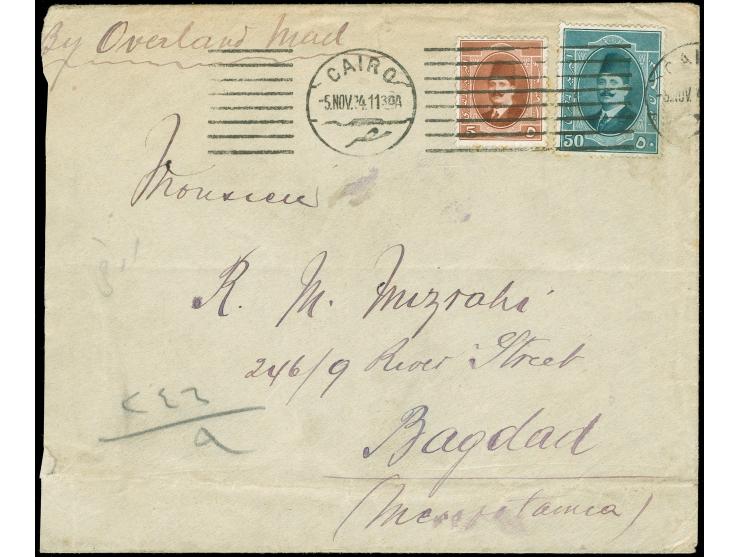 By Overland Mail
CAIRO
-5.NOV.24.1130A
5 ٥
50 ٥٠
CAI
-5.NOV.2
Monsieur
R. M. Mizrahi
246/9 River Street
Bagdad
(Mesopotamia)